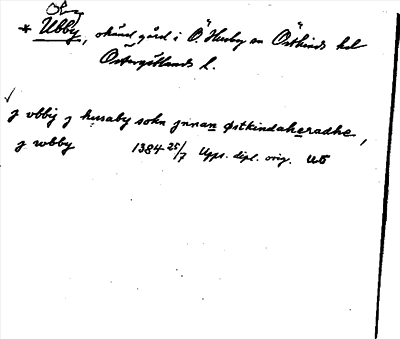 Obs
* Ubby, okänd gård i Ö. Husby sn Östkinds hd
Östergötlands l.
j vbbij j husaby sokn jnnan østkindaheradhe,
j wbby 1384 25/7 Upps. dipl. orig. UB